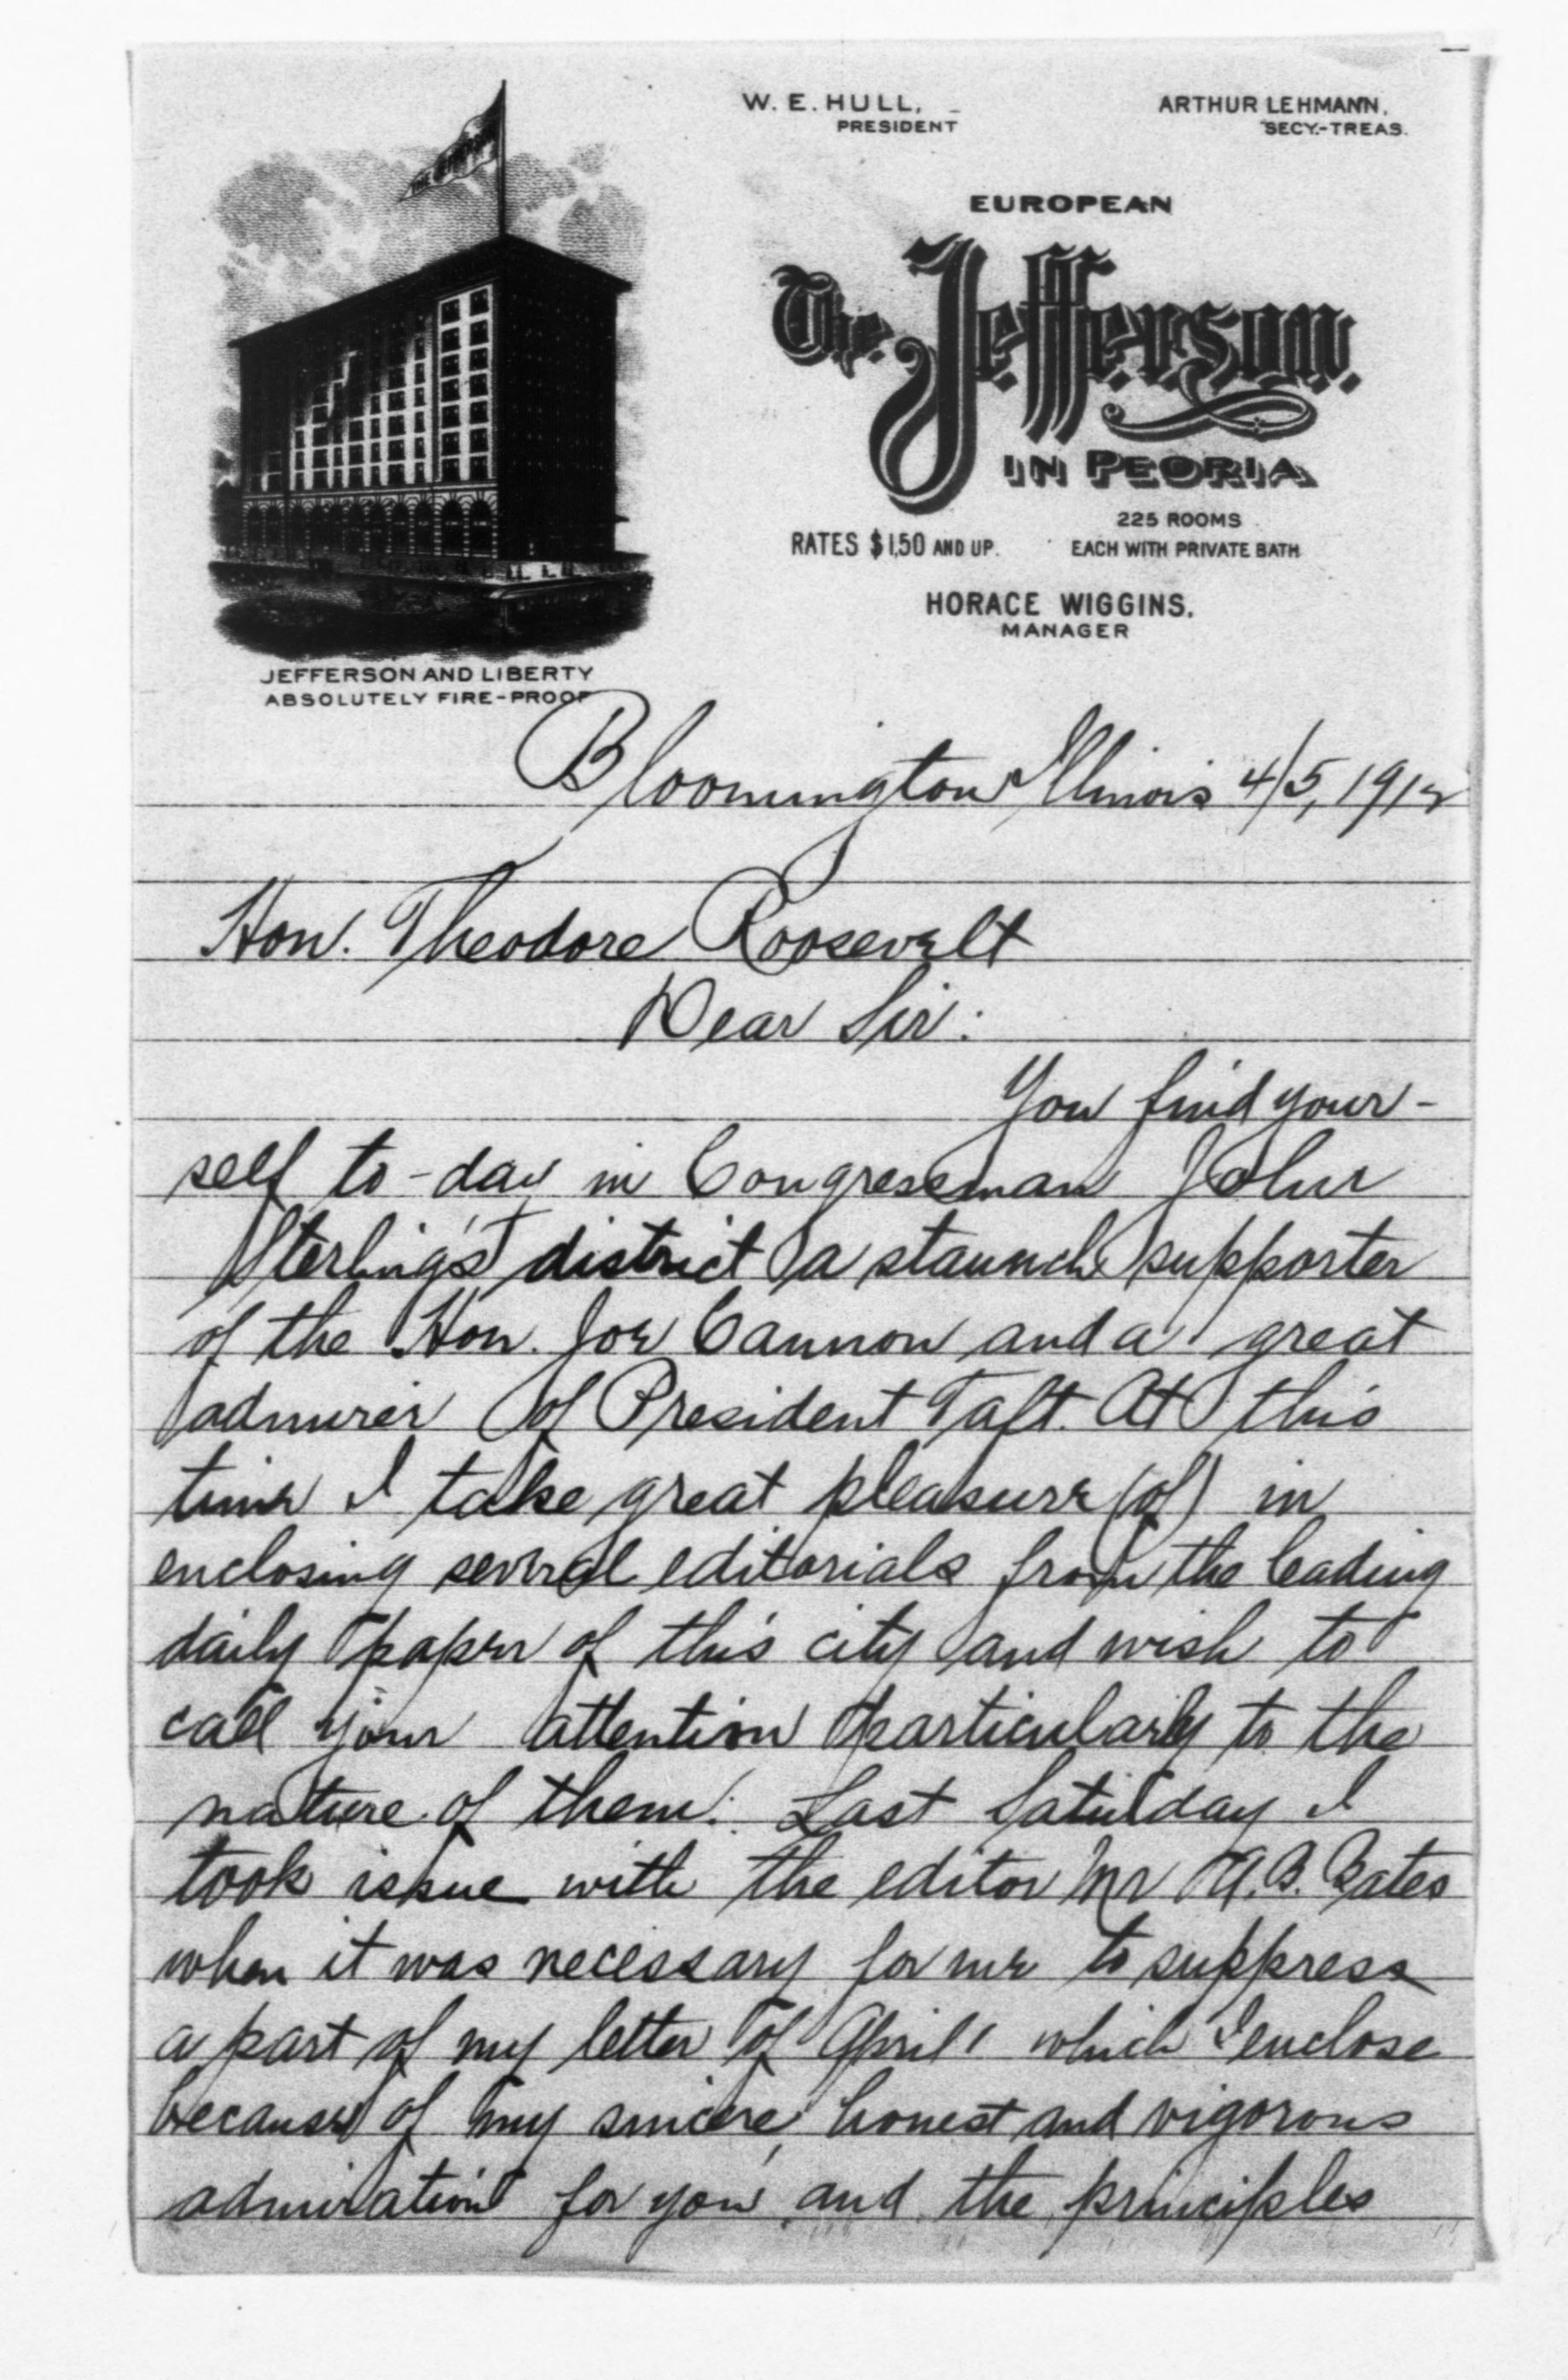 W. E. HULL,
PRESIDENT
ARTHUR LEHMANN,
SECY.-TREAS.
EUROPEAN
The Jefferson
IN PEORIA
225 ROOMS
RATES $1.50 AND UP. EACH WITH PRIVATE BATH
HORACE WIGGINS.
MANAGER
JEFFERSON AND LIBERTY
ABSOLUTELY FIRE-PROOF
Bloomington Illinois 4/5, 1912
Hon. Theodore Roosevelt
Dear Sir:
You find your-
self to-day in Congressman John
Sterling's district a staunch supporter
of the Hon. Joe Cannon and a great
admirer of President Taft. At this
time I take great pleasure (of) in
enclosing several editorials from the leading
daily paper of this city and wish to
call your attention particularly to the
nature of them. Last Saturday I
took issue with the editor Mr A.B. Bates
when it was necessary for me to suppress
a part of my letter of April 1 which I enclose
because of my sincere, honest and vigorous
admiration for you and the principles